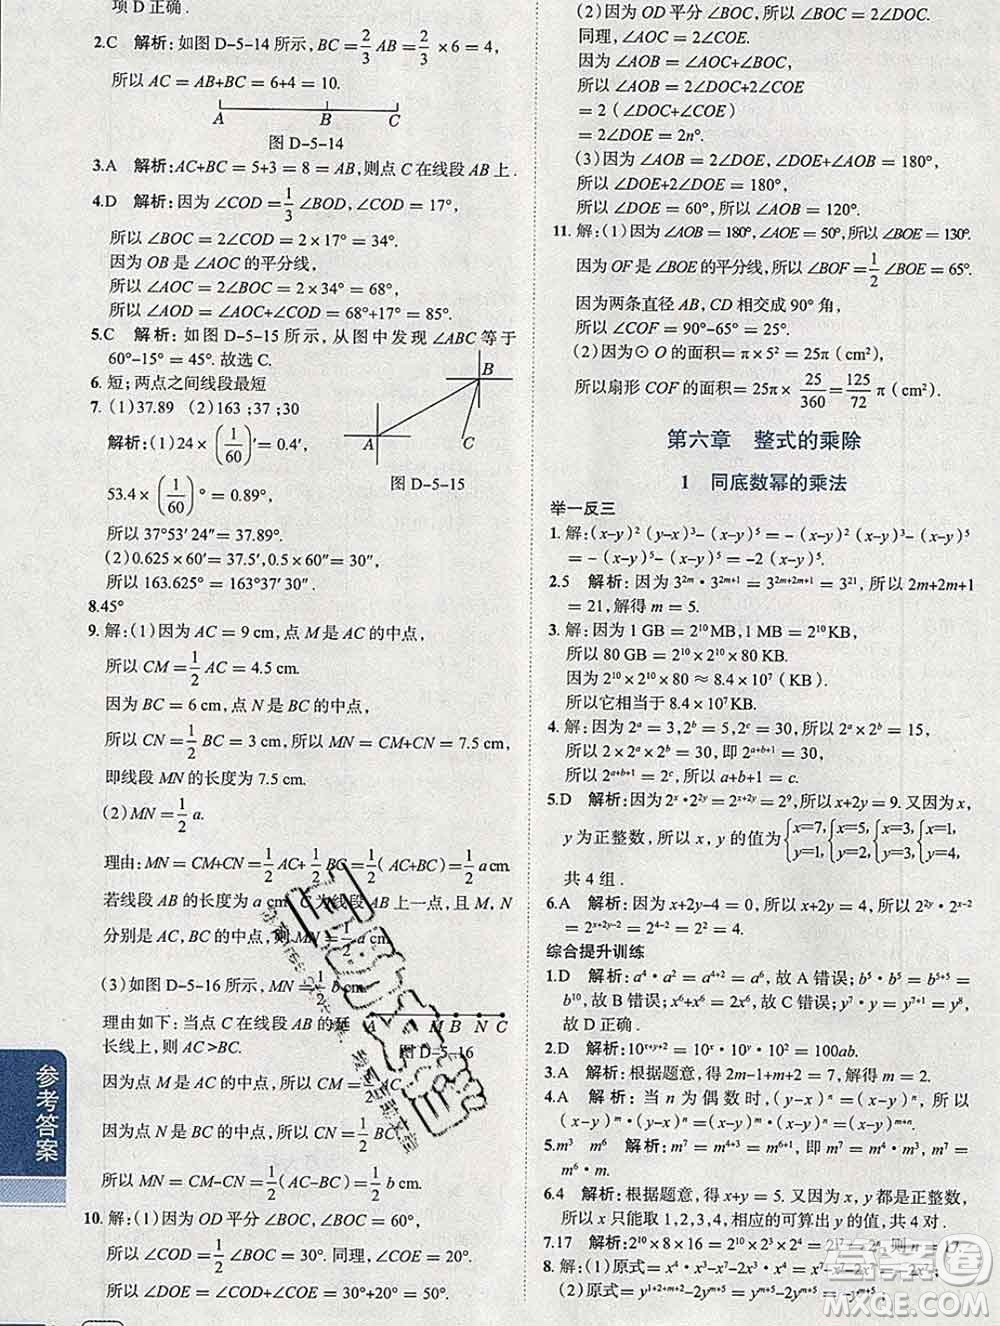 项 D 正确.
2.C 解析:如图 D-5-14 所示, BC = 2/3 AB = 2/3 × 6 = 4,
所以 AC = AB+BC = 6+4 = 10.
A B C
图 D-5-14
3.A 解析: AC+BC = 5+3 = 8 = AB,则点 C 在线段 AB 上.
4.D 解析:因为 ∠COD = 1/3 ∠BOD, ∠COD = 17°,
所以 ∠BOC = 2∠COD = 2×17° = 34°.
因为 OB 是 ∠AOC 的平分线,
所以 ∠AOC = 2∠BOC = 2×34° = 68°,
所以 ∠AOD = ∠AOC+∠COD = 68°+17° = 85°.
5.C 解析:如图 D-5-15 所示,从图中发现 ∠ABC 等于
60°-15° = 45°. 故选 C.
6. 短;两点之间线段最短
7. (1)37.89 (2)163 ;37;30
解析:(1)24 × (1/60)′ = 0.4′,
53.4 × (1/60)° = 0.89°,
所以 37°53′24″ = 37.89°.
(2)0.625×60′ = 37.5′,0.5×60″ = 30″,
所以 163.625° = 163°37′30″.
A B C
图 D-5-15
8.45°
9. 解:(1)因为 AC = 9 cm,点 M 是 AC 的中点,
所以 CM = 1/2 AC = 4.5 cm.
因为 BC = 6 cm,点 N 是 BC 的中点,
所以 CN = 1/2 BC = 3 cm,所以 MN = CM+CN = 7.5 cm,
即线段 MN 的长度为 7.5 cm.
(2)MN = 1/2 a.
理由: MN = CM+CN = 1/2 AC+1/2 BC = 1/2 (AC+BC) = 1/2 a cm.
若线段 AB 的长度为 a cm, C 为线段 AB 上一点,且 M, N
分别是 AC, BC 的中点,则 MN = 1/2 a cm.
(3)如图 D-5-16 所示, MN = 1/2 b cm.
理由如下:当点 C 在线段 AB 的延
长线上,则 AC >BC.
A M B N C
图 D-5-16
因为点 M 是 AC 的中点,所以 CM = 1/2 AC.
因为点 N 是 BC 的中点,所以 CN = 1/2 BC,
所以 MN = CM-CN = 1/2 (AC-BC) = 1/2 b cm.
10. 解:(1)因为 OD 平分 ∠BOC, ∠BOC = 60°,
所以 ∠COD = 1/2 ∠BOC = 30°. 同理, ∠COE = 20°.
所以 ∠DOE = ∠DOC+∠COE = 30°+20° = 50°.
(2)因为 OD 平分 ∠BOC, 所以 ∠BOC = 2∠DOC.
同理, ∠AOC = 2∠COE,
因为 ∠AOB = ∠AOC+∠BOC,
所以 ∠AOB = 2∠DOC+2∠COE
= 2 (∠DOC+∠COE)
= 2∠DOE = 2n°.
(3)因为 ∠DOE+∠AOB = 180°,
所以 ∠DOE+2∠DOE = 180°,
所以 ∠DOE = 60°, 所以 ∠AOB = 120°.
11. 解:(1)因为 ∠AOB = 180°, ∠AOE = 50°,所以 ∠BOE = 130°.
因为 OF 是 ∠BOE 的平分线,所以 ∠BOF = 1/2 ∠BOE = 65°.
因为两条直径 AB, CD 相交成 90° 角,
所以 ∠COF = 90°-65° = 25°.
(2)因为 ⊙ O 的面积 = π × 5² = 25π (cm²),
所以扇形 COF 的面积 = 25π × 25/360 = 125/72 π (cm²).
第六章 整式的乘除
1 同底数幂的乘法
举一反三
1. 解:(x-y)² (y-x)³-(x-y)⁵ = -(x-y)² (x-y)³-(x-y)⁵
= -(x-y)⁵-(x-y)⁵ = -2 (x-y)⁵.
2.5 解析:因为 3²ᵐ · 3²ᵐ⁺¹ = 3²ᵐ⁺²ᵐ⁺¹ = 3²¹, 所以 2m+2m+1
= 21, 解得 m = 5.
3. 解:因为 1 GB = 2¹⁰ MB,1 MB = 2¹⁰ KB,
所以 80 GB = 2¹⁰×2¹⁰×80 (KB).
因为 2¹⁰×2¹⁰×80 ≈ 8.4×10⁷ (KB).
所以它相当于 8.4×10⁷KB.
4. 解:因为 2ᵃ = 3,2ᵇ = 5,所以 2ᵃ×2ᵇ = 15,
所以 2ᵃ×2ᵇ×2 = 30, 即 2ᵃ⁺ᵇ⁺¹ = 30,
所以 2ᵃ⁺ᵇ⁺¹ = 2ᶜ,所以 a+b+1 = c.
5.D 解析:因为 2ˣ · 2²ʸ = 2ˣ⁺²ʸ = 2⁹,所以 x+2y = 9. 因为 x,
y 为正整数,所以 x, y 的值为 {x=7, y=1, {x=5, y=2, {x=3, y=3, {x=1, y=4,
共 4 组.
6.A 解析:因为 x+2y-4 = 0,所以 x+2y = 4,所以 2²ʸ · 2ˣ⁻²
= 2ˣ⁺²ʸ⁻² = 2² = 4.
综合提升训练
1.D 解析: a⁴ · a⁴ = a⁸,故 A 错误; b⁵ · b⁵ = b⁵⁺⁵ =
b¹⁰,故 B 错误; x⁶+x⁶ = 2x⁶,故 C 错误; y⁷ · y = y⁷⁺¹ = y⁸,
故 D 正确.
2.D 解析:10ˣ⁺ʸ⁺² = 10ˣ · 10ʸ · 10² = 100ab.
3.A 解析:根据题意,得 2m-1+2 = 7,解得 m = 3.
4.A 解析:当 n 为偶数时, (y-x)ⁿ = (x-y)ⁿ,所以
(x-y)ᵐ · (y-x)ⁿ = (x-y)ᵐ · (x-y)ⁿ = (x-y)ᵐ⁺ⁿ.
5.m³ m⁶ 解析: m⁷ = m⁴⁺³ = m⁶⁺¹,所以 m⁷ = m⁴ · m³ =
m⁶ · m.
6.4 解析:根据题意,得 x+y = 5. 又 x, y 都是正整数,
所以 x 只能取 1,2,3,4,相应的可算出 y 的值,共 4 对.
7.17 解析:2¹⁰×8×16 = 2¹⁰×2³×2⁴ = 2¹⁷ = 2ⁿ,则 n = 17.
8. 解:(1)原式 = x⁴ · x³-x⁵-2x⁷ = x⁷-x⁵-2x⁷ = -x⁵-x⁷.
(2)原式 = y¹⁺²⁺ᵐ⁺²-yᵐ⁺⁵ = yᵐ⁺⁵-yᵐ⁺⁵
参考答案
答案圈
MXQE.COM